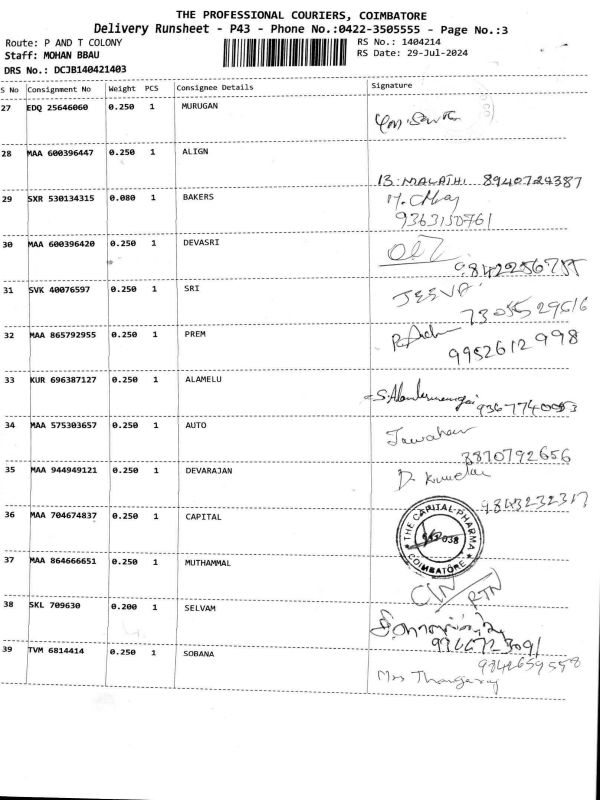 THE PROFESSIONAL COURIERS, COIMBATORE
Delivery Runsheet - P43 - Phone No.:0422-3505555 - Page No.:3
Route: P AND T COLONY
RS No.: 1404214
Staff: MOHAN BBAU
RS Date: 29-Jul-2024
DRS No.: DCJB140421403
S No Consignment No Weight PCS Consignee Details Signature
27 EDQ 25646060 0.250 1 MURUGAN
28 MAA 600396447 0.250 1 ALIGN
B. MALATHI 8940724387
29 SXR 530134315 0.080 1 BAKERS
9363130761
30 MAA 600396420 0.250 1 DEVASRI
31 SVK 40076597 0.250 1 SRI
JEEVA
7305529616
32 MAA 865792955 0.250 1 PREM
9952612998
33 KUR 696387127 0.250 1 ALAMELU
34 MAA 575303657 0.250 1 AUTO
Jawahar
8870792656
35 MAA 944949121 0.250 1 DEVARAJAN
9843232317
36 MAA 704674837 0.250 1 CAPITAL
THE CAPITAL PHARMA
COIMBATORE
37 MAA 864666651 0.250 1 MUTHAMMAL
CIN/RTN
38 SKL 709630 0.200 1 SELVAM
39 TVM 6814414 0.250 1 SOBANA
9842659558
Mrs Thangaraj